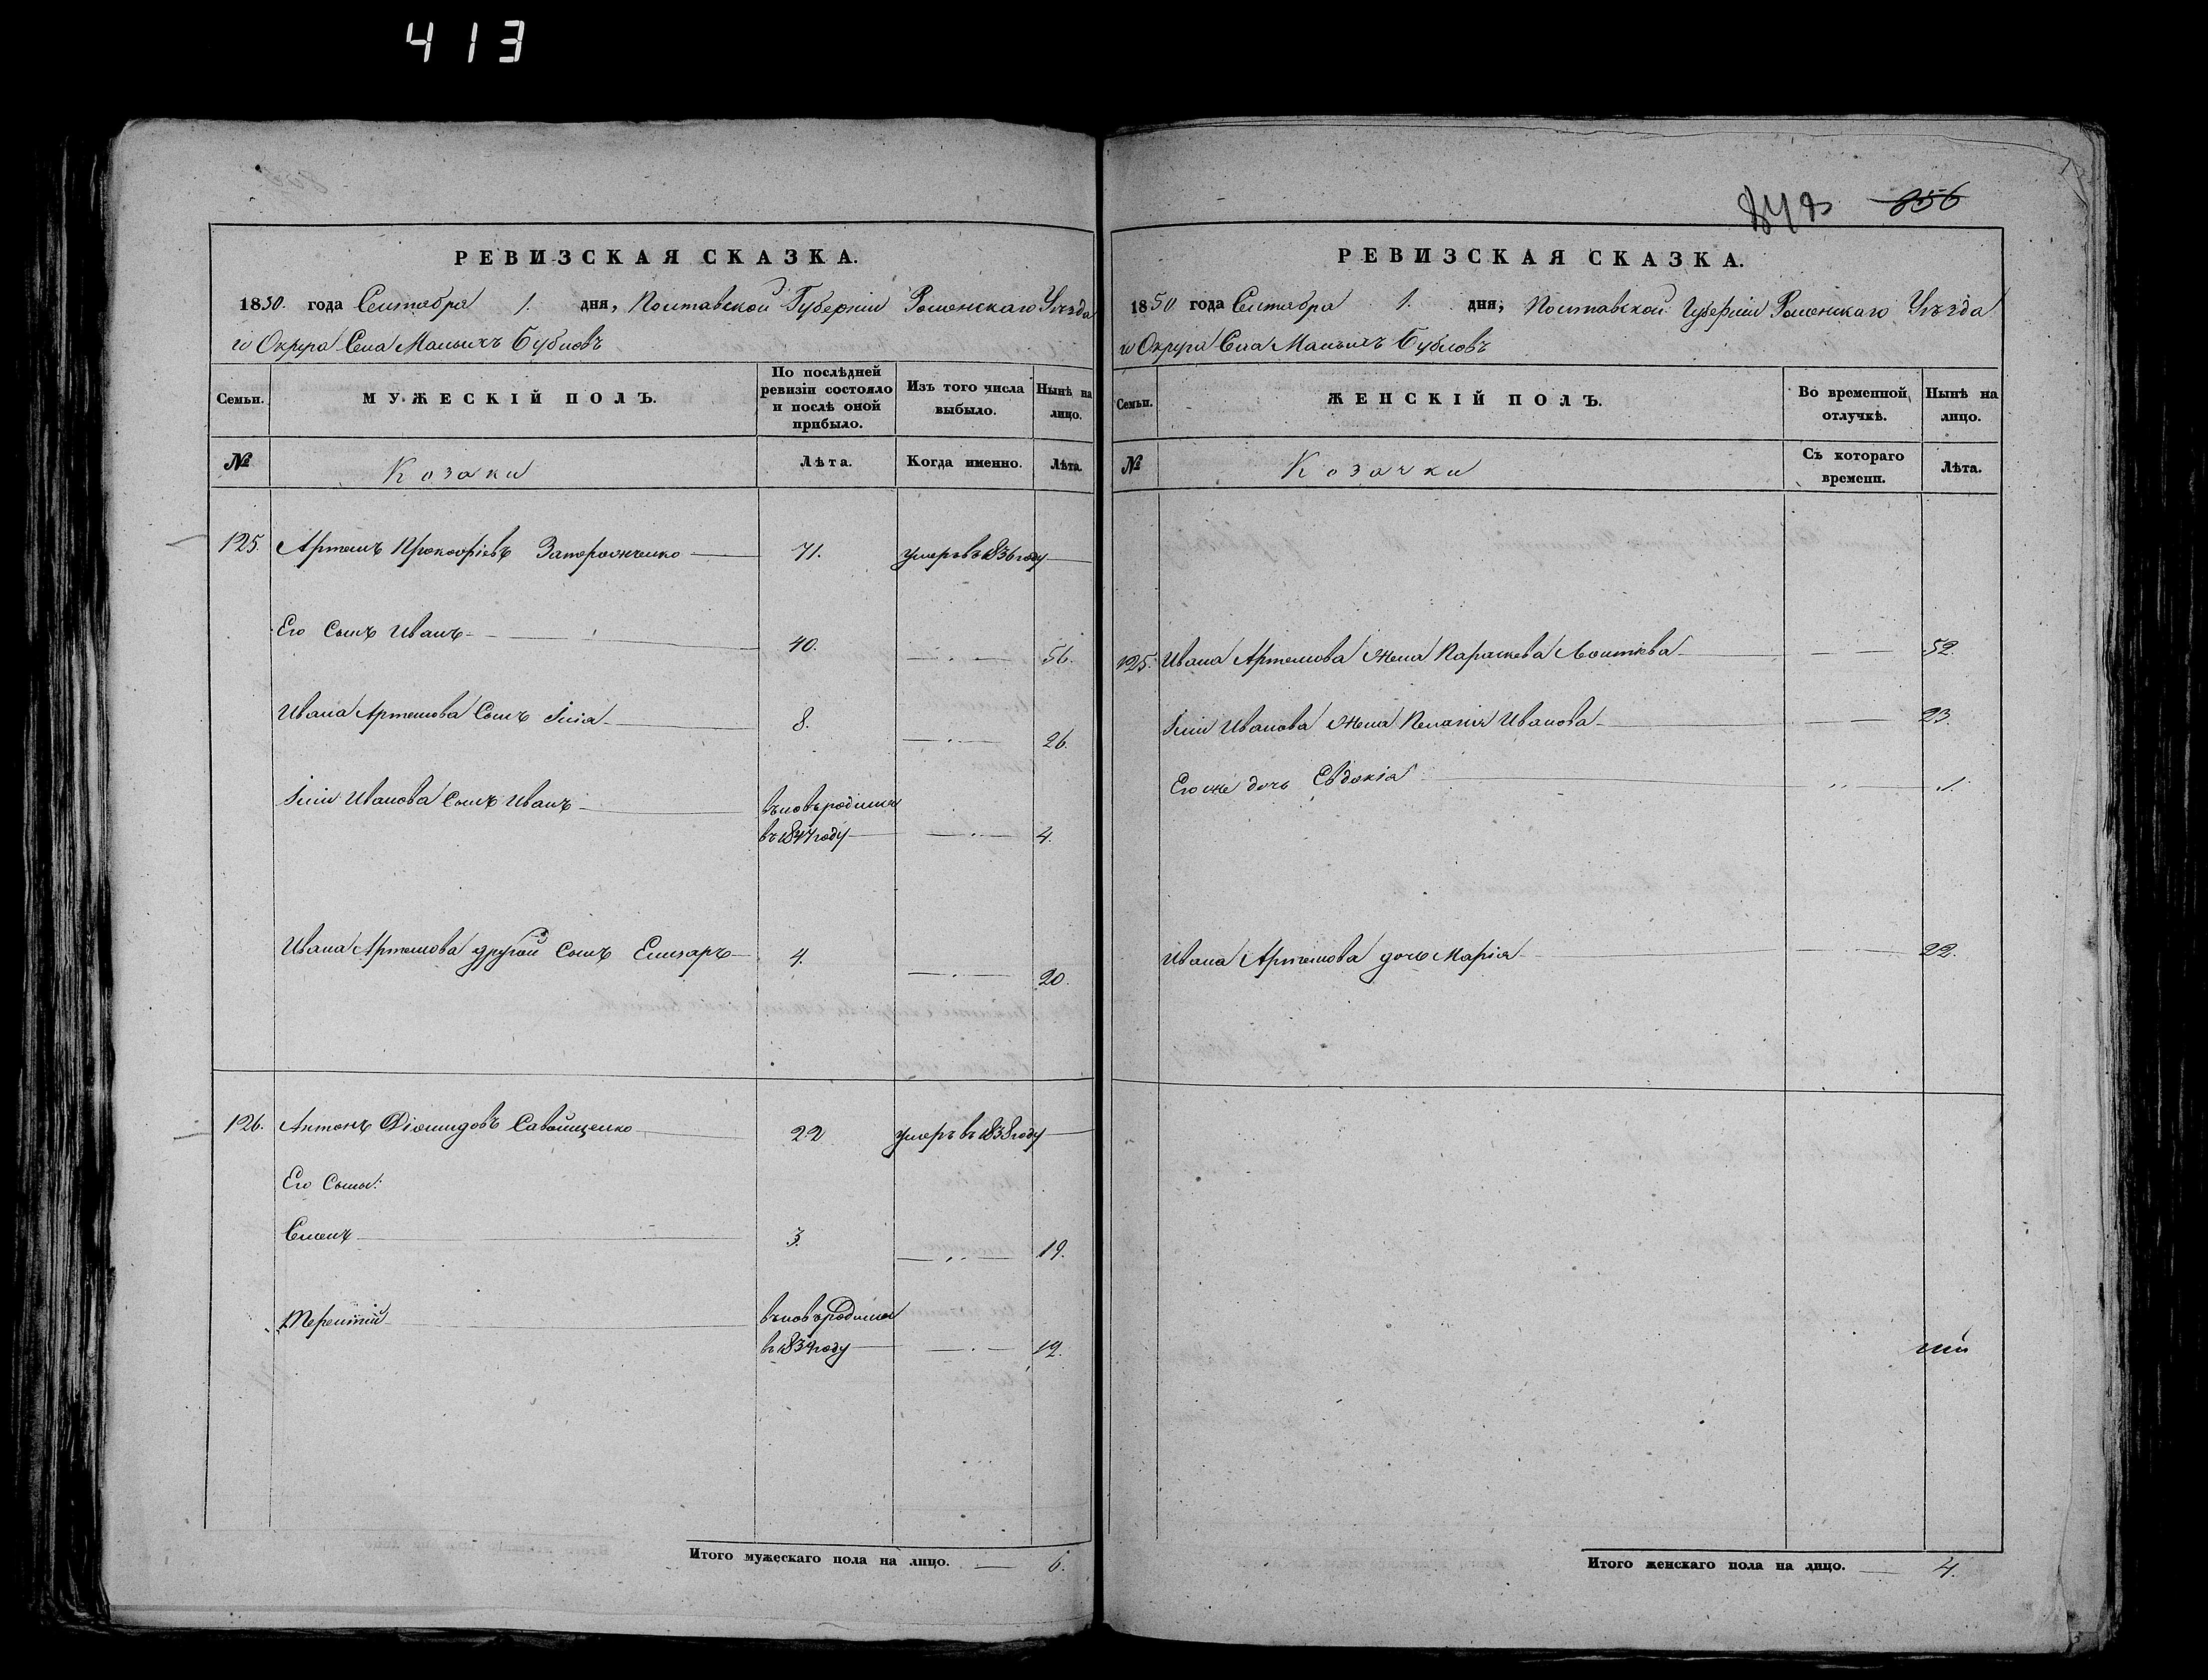 413
856
РЕВИЗСКАЯ СКАЗКА.
1850. года Сентября 1. дня, Полтавской Губерніи Роменскаго Уѣзда
и Округа Села Малыхъ Бубновъ
Семьи.
МУЖЕСКІЙ ПОЛЪ.
По послѣдней ревизіи состояло и послѣ оной прибыло.
Изъ того числа выбыло.
Нынѣ на лицо.
№
Козаки
Лѣта.
Когда именно.
Лѣта.
125. Артемъ Прокофіевъ Запорожченко 71. умеръ въ 1836 году
Его Сынъ Иванъ 40. 56.
Ивана Артемова Сынъ Илія 8. 26.
Иліи Иванова Сынъ Иванъ вновь родился
въ 1847 году 4.
Ивана Артемова другой Сынъ Елизаръ 4. 20.
126. Антонъ Діомидовъ Савощенко 22 умеръ въ 1838 году
Его Сыны:
Семенъ 3. 19.
Терентій вновь родился
въ 1834 году 12.
Итого мужескаго пола на лицо. 6.
РЕВИЗСКАЯ СКАЗКА.
1850 года Сентября 1. дня, Полтавской Губерніи Роменскаго Уѣзда
и Округа Села Малыхъ Бубновъ
Семьи.
ЖЕНСКІЙ ПОЛЪ.
Во временной отлучкѣ.
Нынѣ на лицо.
№
Козачки
Съ котораго времени.
Лѣта.
125. Ивана Артемова Жена Параскева Леонтіева 52.
Иліи Иванова Жена Пелагія Иванова 23.
Его же дочь Евдокія 1.
Ивана Артемова дочь Марія 22.
Итого женскаго пола на лицо. 4.